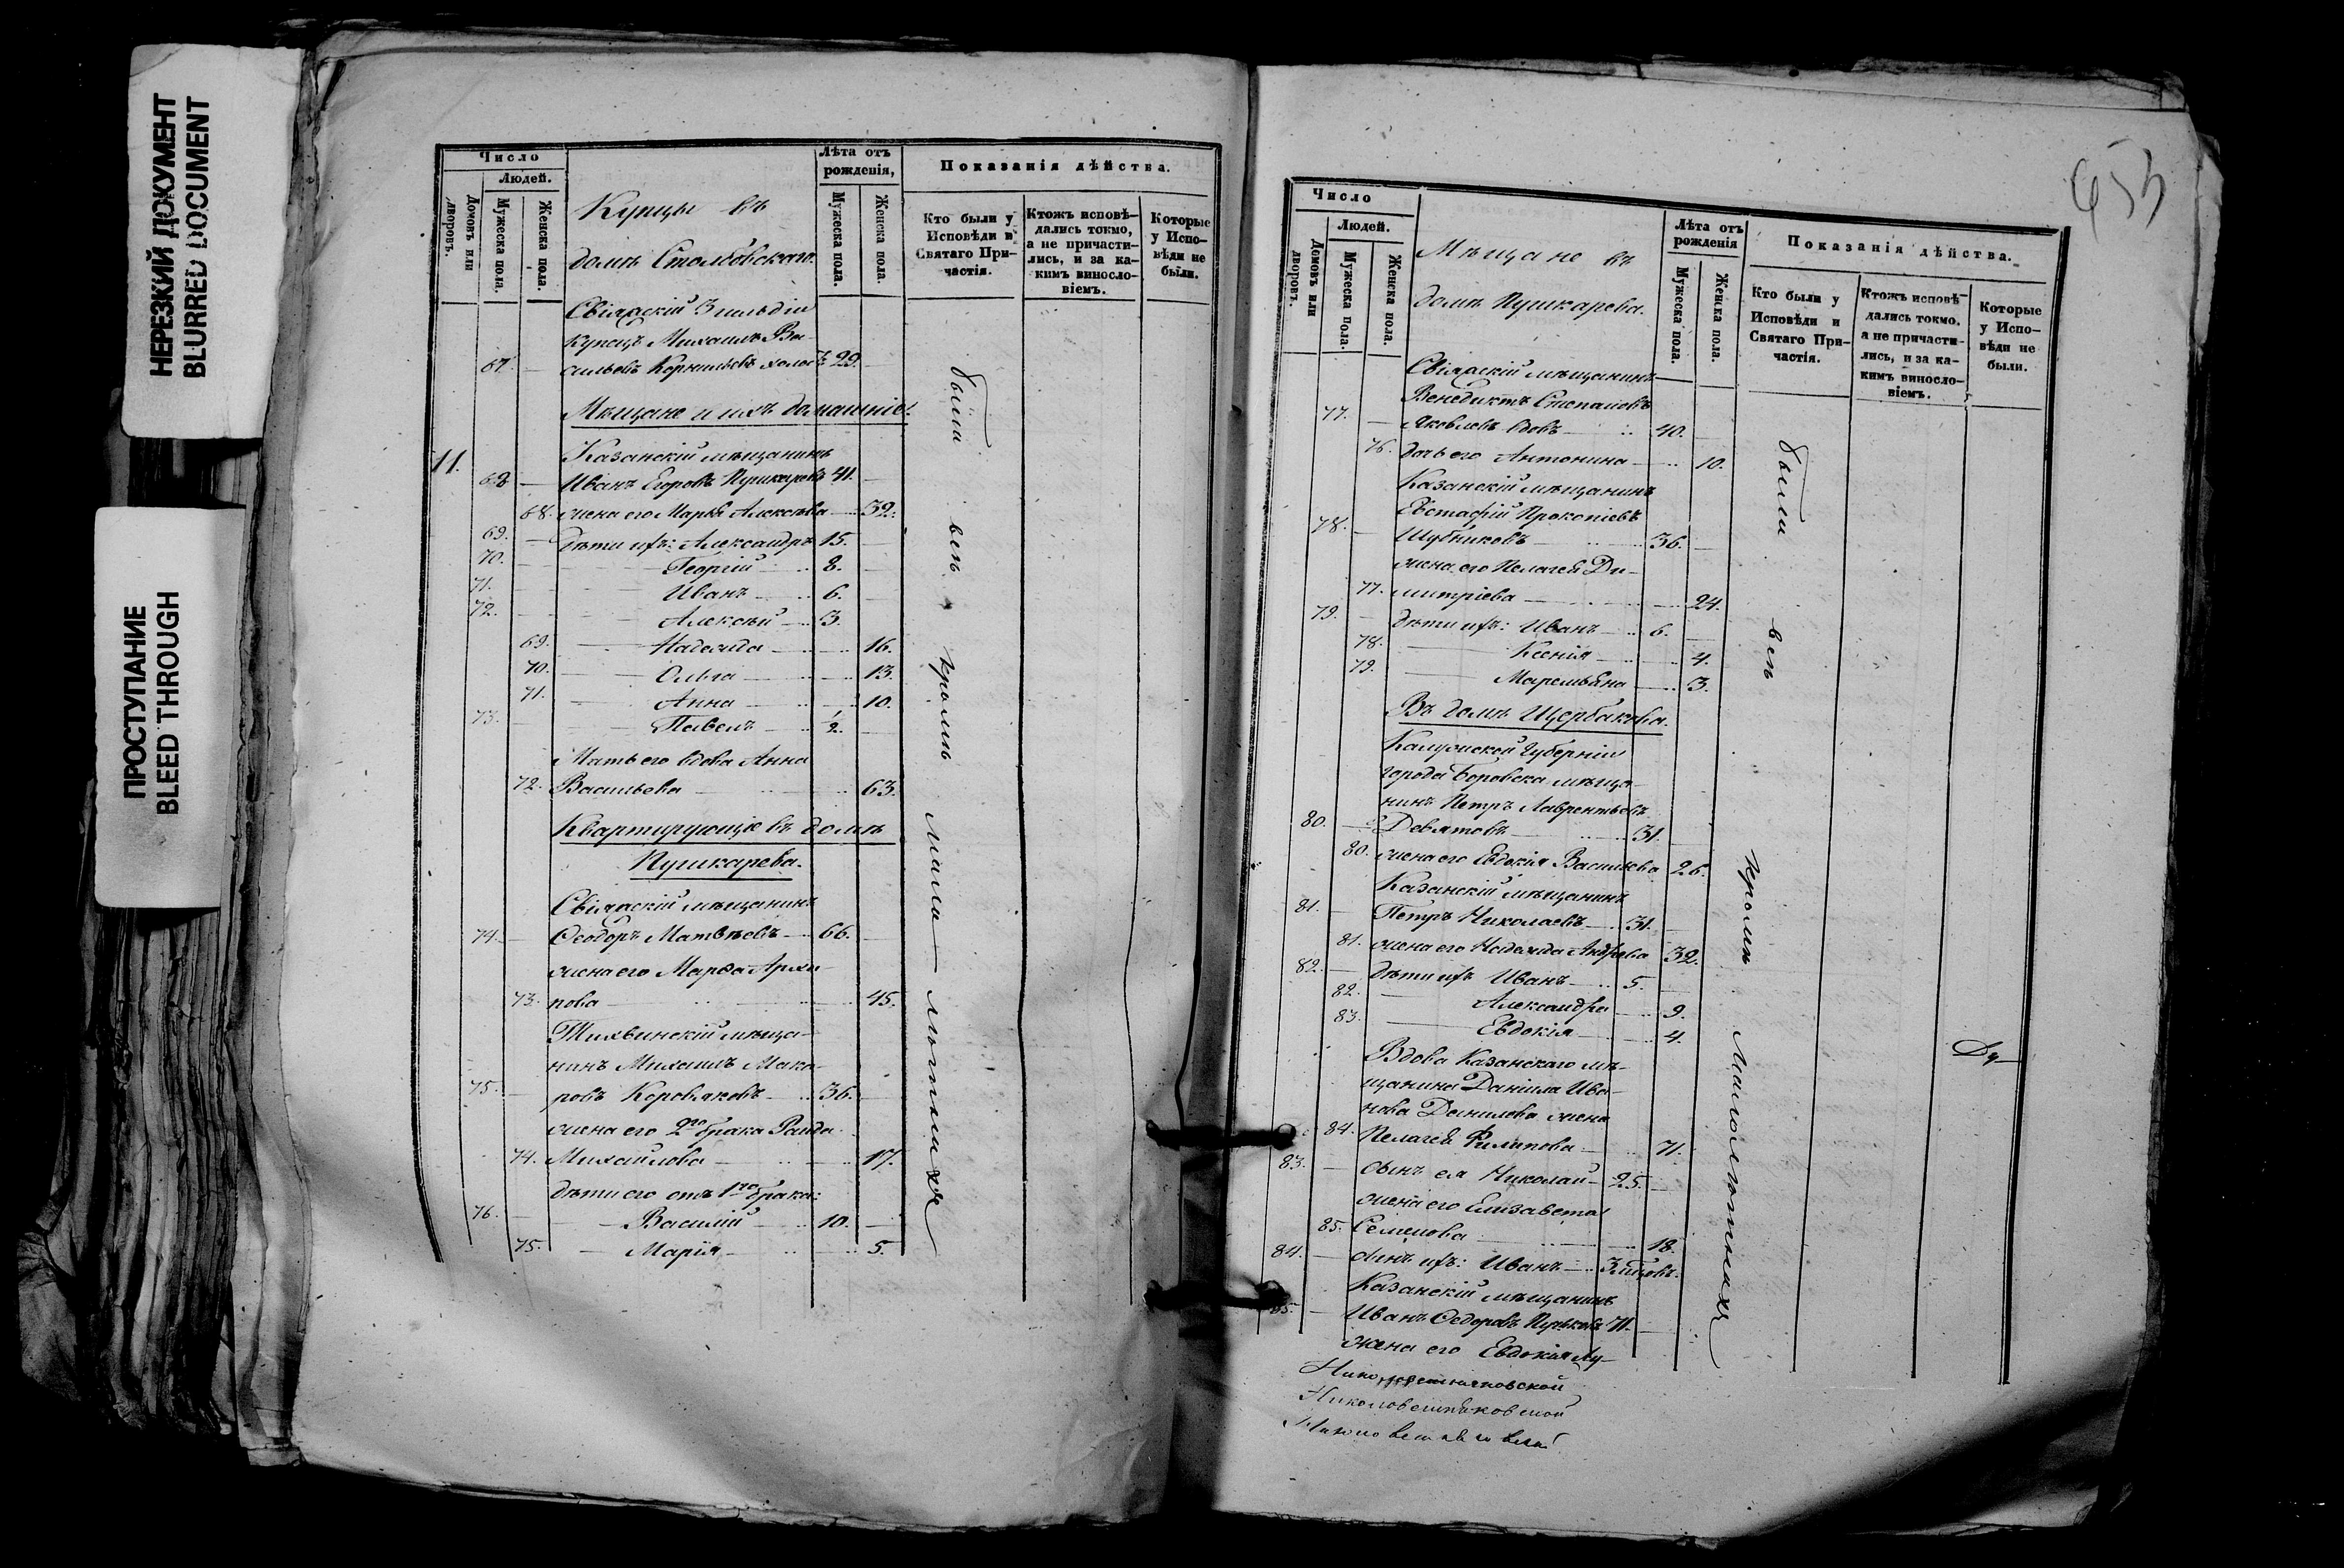 НЕРЕЗКИЙ ДОКУМЕНТ
BLURRED DOCUMENT
ПРОСТУПАНИЕ
BLEED THROUGH
Число
Людей.
Домовъ или дворовъ.
Мужеска пола.
Женска пола.
Купцы въ
домѣ Столбовскаго.
Лѣта отъ рожденія,
Мужеска пола.
Женска пола.
Показанія дѣйства.
Кто были у Исповѣди и Святаго Причастія.
Ктожъ исповѣдались токмо, а не причастились, и за какимъ винословіемъ.
Которые у Исповѣди не были.
Свіяжскій 3 гильдіи
купецъ Михаилъ Ва-
67. сильевъ Корнильевъ холостъ 29.
Мѣщане и ихъ домашніе:
11. Казанскій мѣщанинъ
68. Иванъ Егоровъ Пушкаревъ 41.
68. жена его Марья Алексѣева 39.
69. дѣти ихъ: Александръ 15.
70. Георгій 8.
71. Иванъ 6.
72. Алексѣй 3.
69. Надежда 16.
70. Ольга 13.
71. Анна 10.
73. Павелъ 1/2
Мать его вдова Анна
72. Васильева 63.
Квартирующіе въ домѣ
Пушкарева.
Свіяжскій мѣщанинъ
74. Ѳеодоръ Матвѣевъ 66.
жена его Марѳа Архи-
73. пова 45.
Тихвинскій мѣща-
нинъ Михаилъ Мака-
75. ровъ Коровяковъ 36.
жена его 2го брака Раида
74. Михайлова 17.
дѣти его отъ 1го брака:
76. Василій 10.
75. Марія 5.
были всѣ кромѣ малолѣтныхъ
653
Число
Людей.
Домовъ или дворовъ.
Мужеска пола.
Женска пола.
Мѣщане въ
домѣ Пушкарева.
Лѣта отъ рожденія
Мужеска пола.
Женска пола.
Показанія дѣйства.
Кто были у Исповѣди и Святаго Причастія.
Ктожъ исповѣдались токмо, а не причастились, и за какимъ винословіемъ.
Которые у Исповѣди не были.
Свіяжскій мѣщанинъ
Венедиктъ Степановъ
77. Яковлевъ вдовъ 40.
76. дочь его Антонина 10.
Казанскій мѣщанинъ
Евстафій Прокопіевъ
78. Шубниковъ 36.
жена его Пелагея Ди-
77. митріева 24.
79. дѣти ихъ: Иванъ 6.
78. Ксенія 4.
79. Маремьяна 3.
Въ домѣ Щербакова.
Калужской Губерніи
города Боровска мѣща-
нинъ Петръ Лаврентьевъ
80. Девятовъ 31.
80. жена его Евдокія Васильева 26.
Казанскій мѣщанинъ
81. Петръ Николаевъ 31.
81. жена его Надежда Андрева 32.
82. дѣти ихъ Иванъ 5.
82. Александра 9.
83. Евдокія 4.
Вдова Казанскаго мѣ-
щанина Даніила Ива-
нова Данилова жена
84. Пелагея Филипова 71.
83. сынъ ея Николай 25.
жена его Елизавета
85. Семенова 18.
84. сынъ ихъ: Иванъ
Казанскій мѣщанинъ
85. Иванъ Ѳедоровъ 71.
жена его Евдокія Лу-
были всѣ кромѣ малолѣтныхъ
Николовешняковской